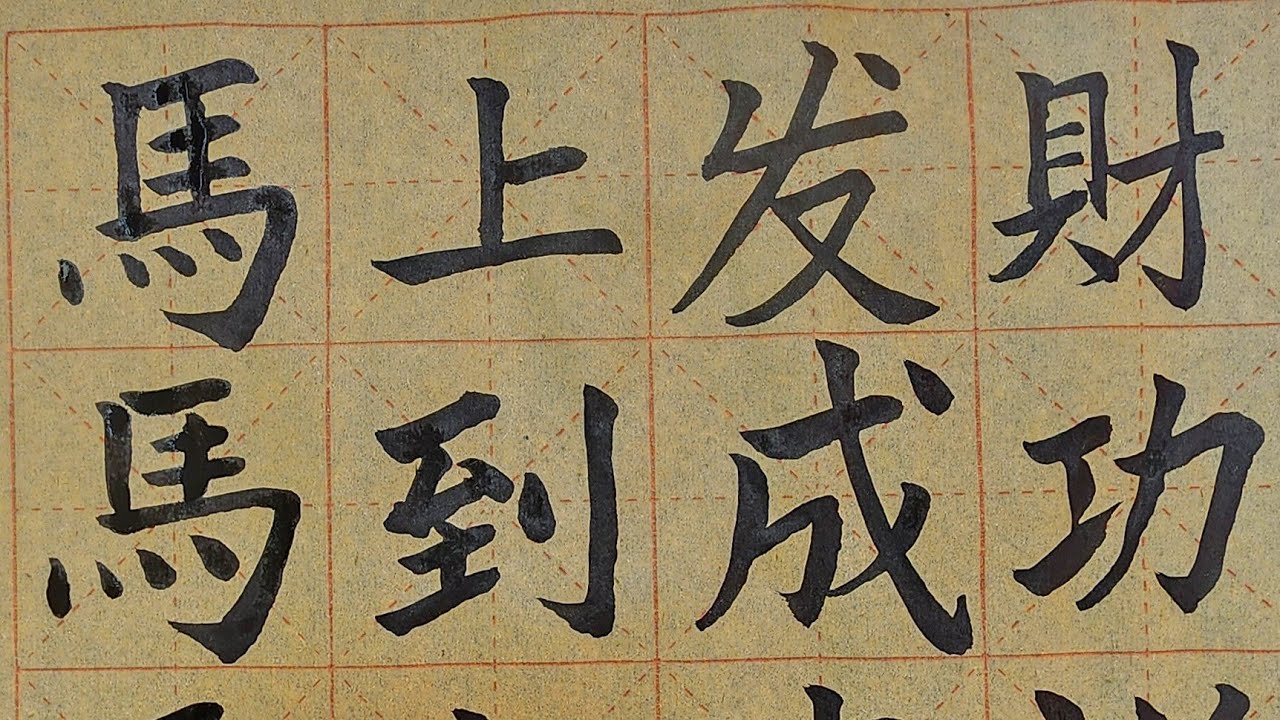 馬上发財
馬到成功